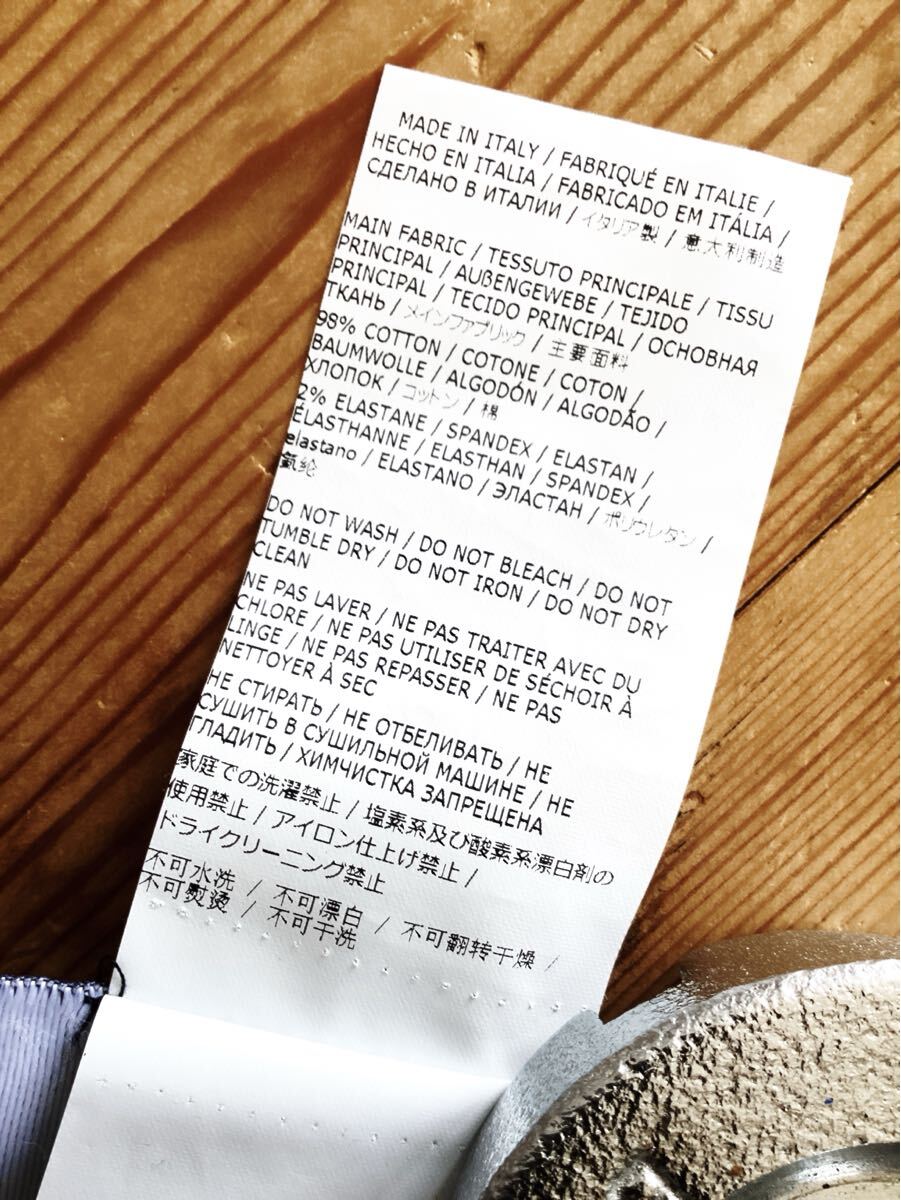 MADE IN ITALY / FABRIQUÉ EN ITALIE /
HECHO EN ITALIA / FABRICADO EM ITÁLIA /
СДЕЛАНО В ИТАЛИИ / イタリア製 / 意大利制造
MAIN FABRIC / TESSUTO PRINCIPALE / TISSU
PRINCIPAL / AUßENGEWEBE / TEJIDO
PRINCIPAL / TECIDO PRINCIPAL / ОСНОВНАЯ
ТКАНЬ / メインファブリック / 主要面料
98% COTTON / COTONE / COTON /
BAUMWOLLE / ALGODÓN / ALGODÃO /
ХЛОПОК / コットン / 棉
2% ELASTANE / SPANDEX / ELASTAN /
ÉLASTHANNE / ELASTHAN / SPANDEX /
elastano / ELASTANO / ЭЛАСТАН / ポリウレタン /
氨纶
DO NOT WASH / DO NOT BLEACH / DO NOT
TUMBLE DRY / DO NOT IRON / DO NOT DRY
CLEAN
NE PAS LAVER / NE PAS TRAITER AVEC DU
CHLORE / NE PAS UTILISER DE SÉCHOIR À
LINGE / NE PAS REPASSER / NE PAS
NETTOYER À SEC
НЕ СТИРАТЬ / НЕ ОТБЕЛИВАТЬ / НЕ
СУШИТЬ В СУШИЛЬНОЙ МАШИНЕ / НЕ
ГЛАДИТЬ / ХИМЧИСТКА ЗАПРЕЩЕНА
家庭での洗濯禁止 / 塩素系及び酸素系漂白剤の
使用禁止 / アイロン仕上げ禁止 /
ドライクリーニング禁止
不可水洗 / 不可漂白 / 不可翻转干燥 /
不可熨烫 / 不可干洗